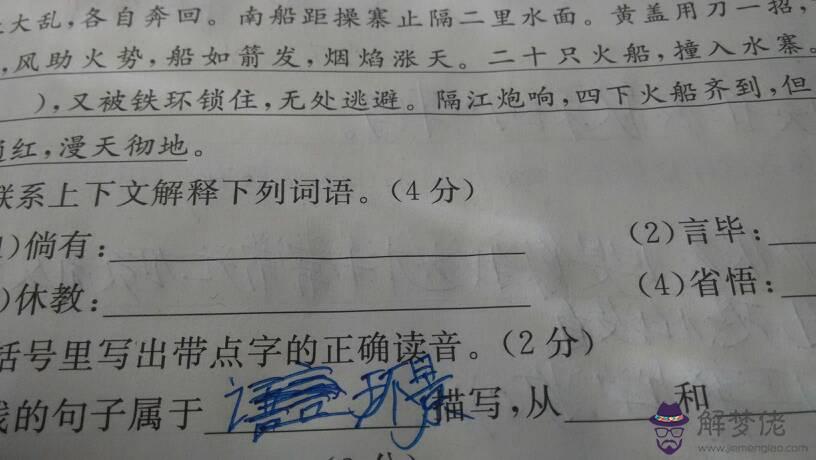 大乱,各自奔回。南船距操寨止隔二里水面。黄盖用刀一招,
,风助火势,船如箭发,烟焰涨天。二十只火船,撞入水寨。
),又被铁环锁住,无处逃避。隔江炮响,四下火船齐到,但
红,漫天彻地。
联系上下文解释下列词语。(4分)
)倘有:________ (2)言毕:____
)休教:________ (4)省悟:____
括号里写出带点字的正确读音。(2分)
的句子属于 语言 环景 描写,从____和____
解梦佬
www.jiemenglao.com